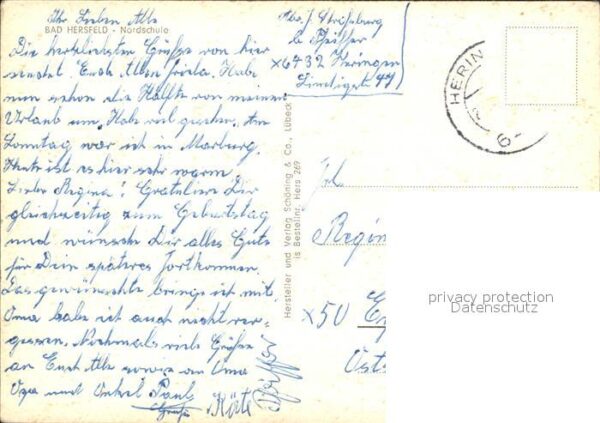 Ihr Lieben Alle
BAD HERSFELD - Nordschule
Die herzlichsten Grüße von hier
sendet Euch Allen Frieda. Habe
nun schon die Hälfte von meinen
Urlaub um. Habe viel gesehen. Am
Sonntag war ich in Marburg.
Heute ist es hier sehr warm.
Liebe Regina! Gratuliere Dir
gleichzeitig zum Geburtstag
und wünsche Dir alles Gute
für Dein späteres Fortkommen.
Das gewünschte bringe ich mit.
Oma habe ich auch nicht ver-
gessen. Nochmals viele Grüße
an Euch Alle sowie von Oma
Opa und Onkel Paul
Grüße Käte Pfeiffer
Abs. F. Straßburg
b. Pfeiffer
X 6432 Heringen
44
HERIN
6-
Hersteller und Verlag Schöning & Co., Lübeck
is Bestellnr. Hers 269
Frl.
Regin
X50
Osts
privacy protection
Datenschutz